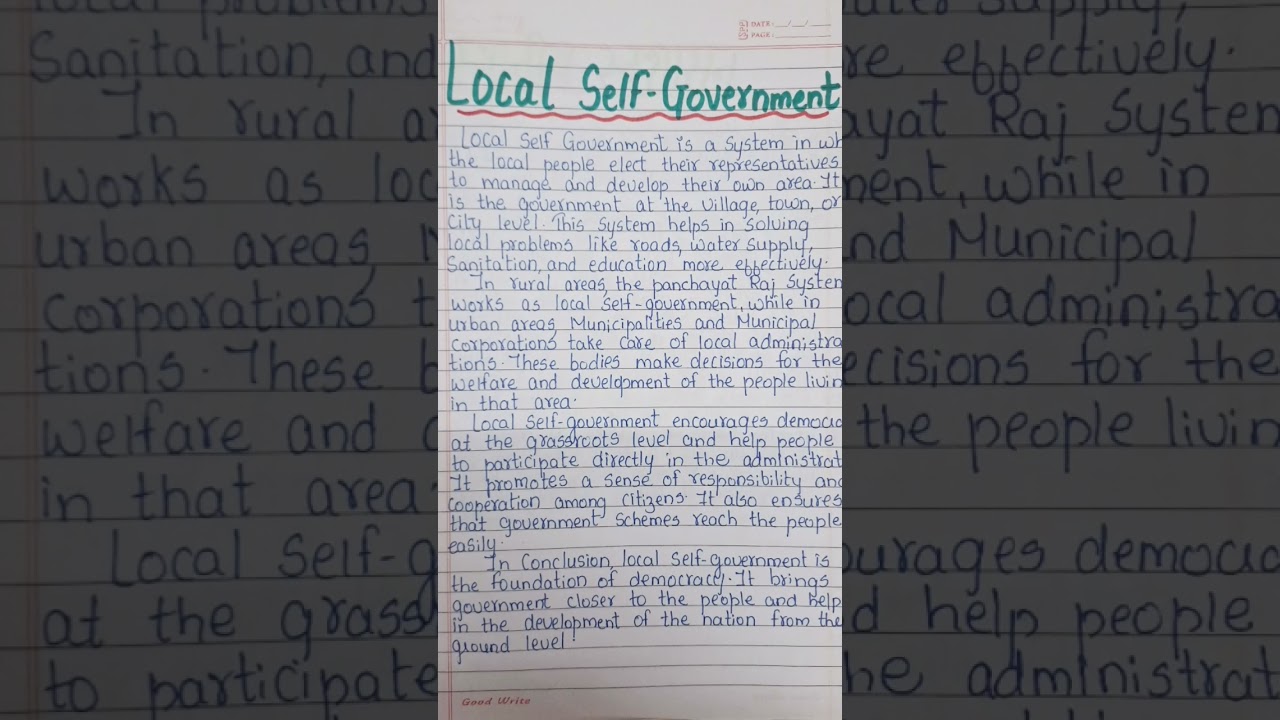 DATE: __/__/__
PAGE:
Local Self-Government
Local Self Government is a System in wh
the local people elect their representatives
to manage and develop their own area. It
is the government at the village, town, or
City level. This System helps in solving
local problems like roads, water supply,
Sanitation, and education more effectively.
In rural areas, the panchayat Raj System
works as local self-government, while in
urban areas, Municipalities and Municipal
corporations take care of local administra
tions. These bodies make decisions for the
welfare and development of the people livin
in that area.
Local Self-government encourages democra
at the grassroots level and help people
to participate directly in the administrat
It promotes a sense of responsibility and
cooperation among citizens. It also ensures
that government Schemes reach the people
easily.
In Conclusion, local Self-government is
the foundation of democracy. It brings
government closer to the people and help
in the development of the nation from the
ground level!
Good Write